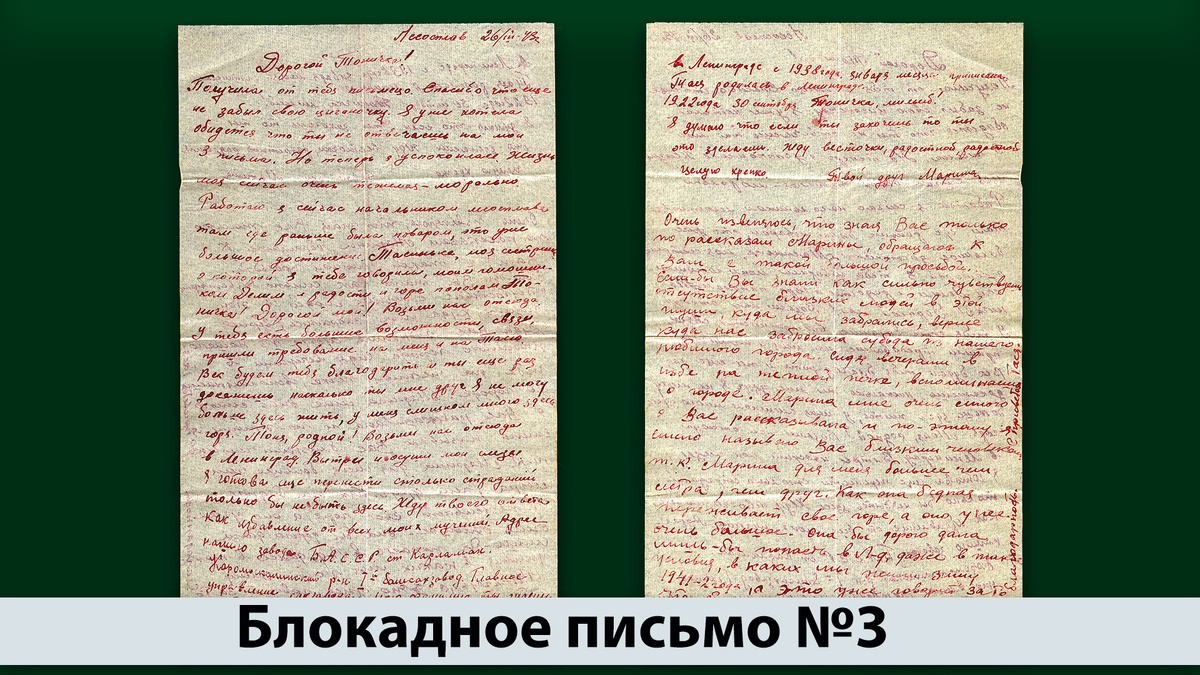 Лесосплав 26/III-43г
Дорогой Тоничка!
Получила от тебя письмецо. Спасибо что еще
не забыл свою цыганочку. Я уже хотела
обидется что ты не отвечаеш на мои
3 письма. Но теперь я успокоилась. Жизнь
моя сейчас очень тяжелая-морально
Работаю я сейчас начальником лесосплава
там где раньше была поваром, это уже
большое достижение. Тасинька, моя сестрица
о которой я тебе говорила, моим помощни-
ком. Делим и радости и горе пополам. То-
ничка! Дорогой мой! Возьми нас отсюда
у тебя есть большие возможности, связи,
пришли требование на меня и на Таю
Век будем тебя благодарить и ты еще раз
докажешь насколько ты мне друг. Я не могу
больше здесь жить, у меня слишком много здесь
горя. Тоня, родной! Возьми нас отсюда
в Ленинград. Вытри насуши мои слезы
Я готова еще перенести столько страданий
только бы не быть здесь. Жду твоего ответа
как избавление от всех моих мучений. Адрес
нашего завода. Б.А.С.С.Р ст Карламан.
р-н 1й Главное
управление
в Ленинграде с 1938 года, января месяца прописана.
Тася родилась в Ленинграде.
1922 года 30 октября Тоничка, милый!
Я думаю что если ты захочешь то ты
это зделаеш. Жду весточки, радостной, радостной
Целую крепко Твой друг Марина.
Очень извеняюсь, что зная Вас только
по рассказам Марины, обращаюсь к
Вам с такой большой просьбой.
Если-бы Вы знали как сильно чувствуем
отсутствие близких людей в этой
глуши, куда мы забрались, вернее
куда нас забросила судьба от нашего
любимого города. Сидя вечерами в
избе на теплой печке, вспоминаем
о городе. Марина мне очень много
о Вас рассказывала и по-этому я
смело называю Вас близким человеком
т.к. Марина для меня больше чем
сестра, чем друг. Как она бедная
переживает свое горе, а оно у нее
очень большое. Она бы дорого дала
лишь-бы попасть в Л-д, даже в такие
условия, в каких мы жили зиму
1941-2 года, а это уже говорит за то
С приветом Тася
Благодарю
Блокадное письмо №3